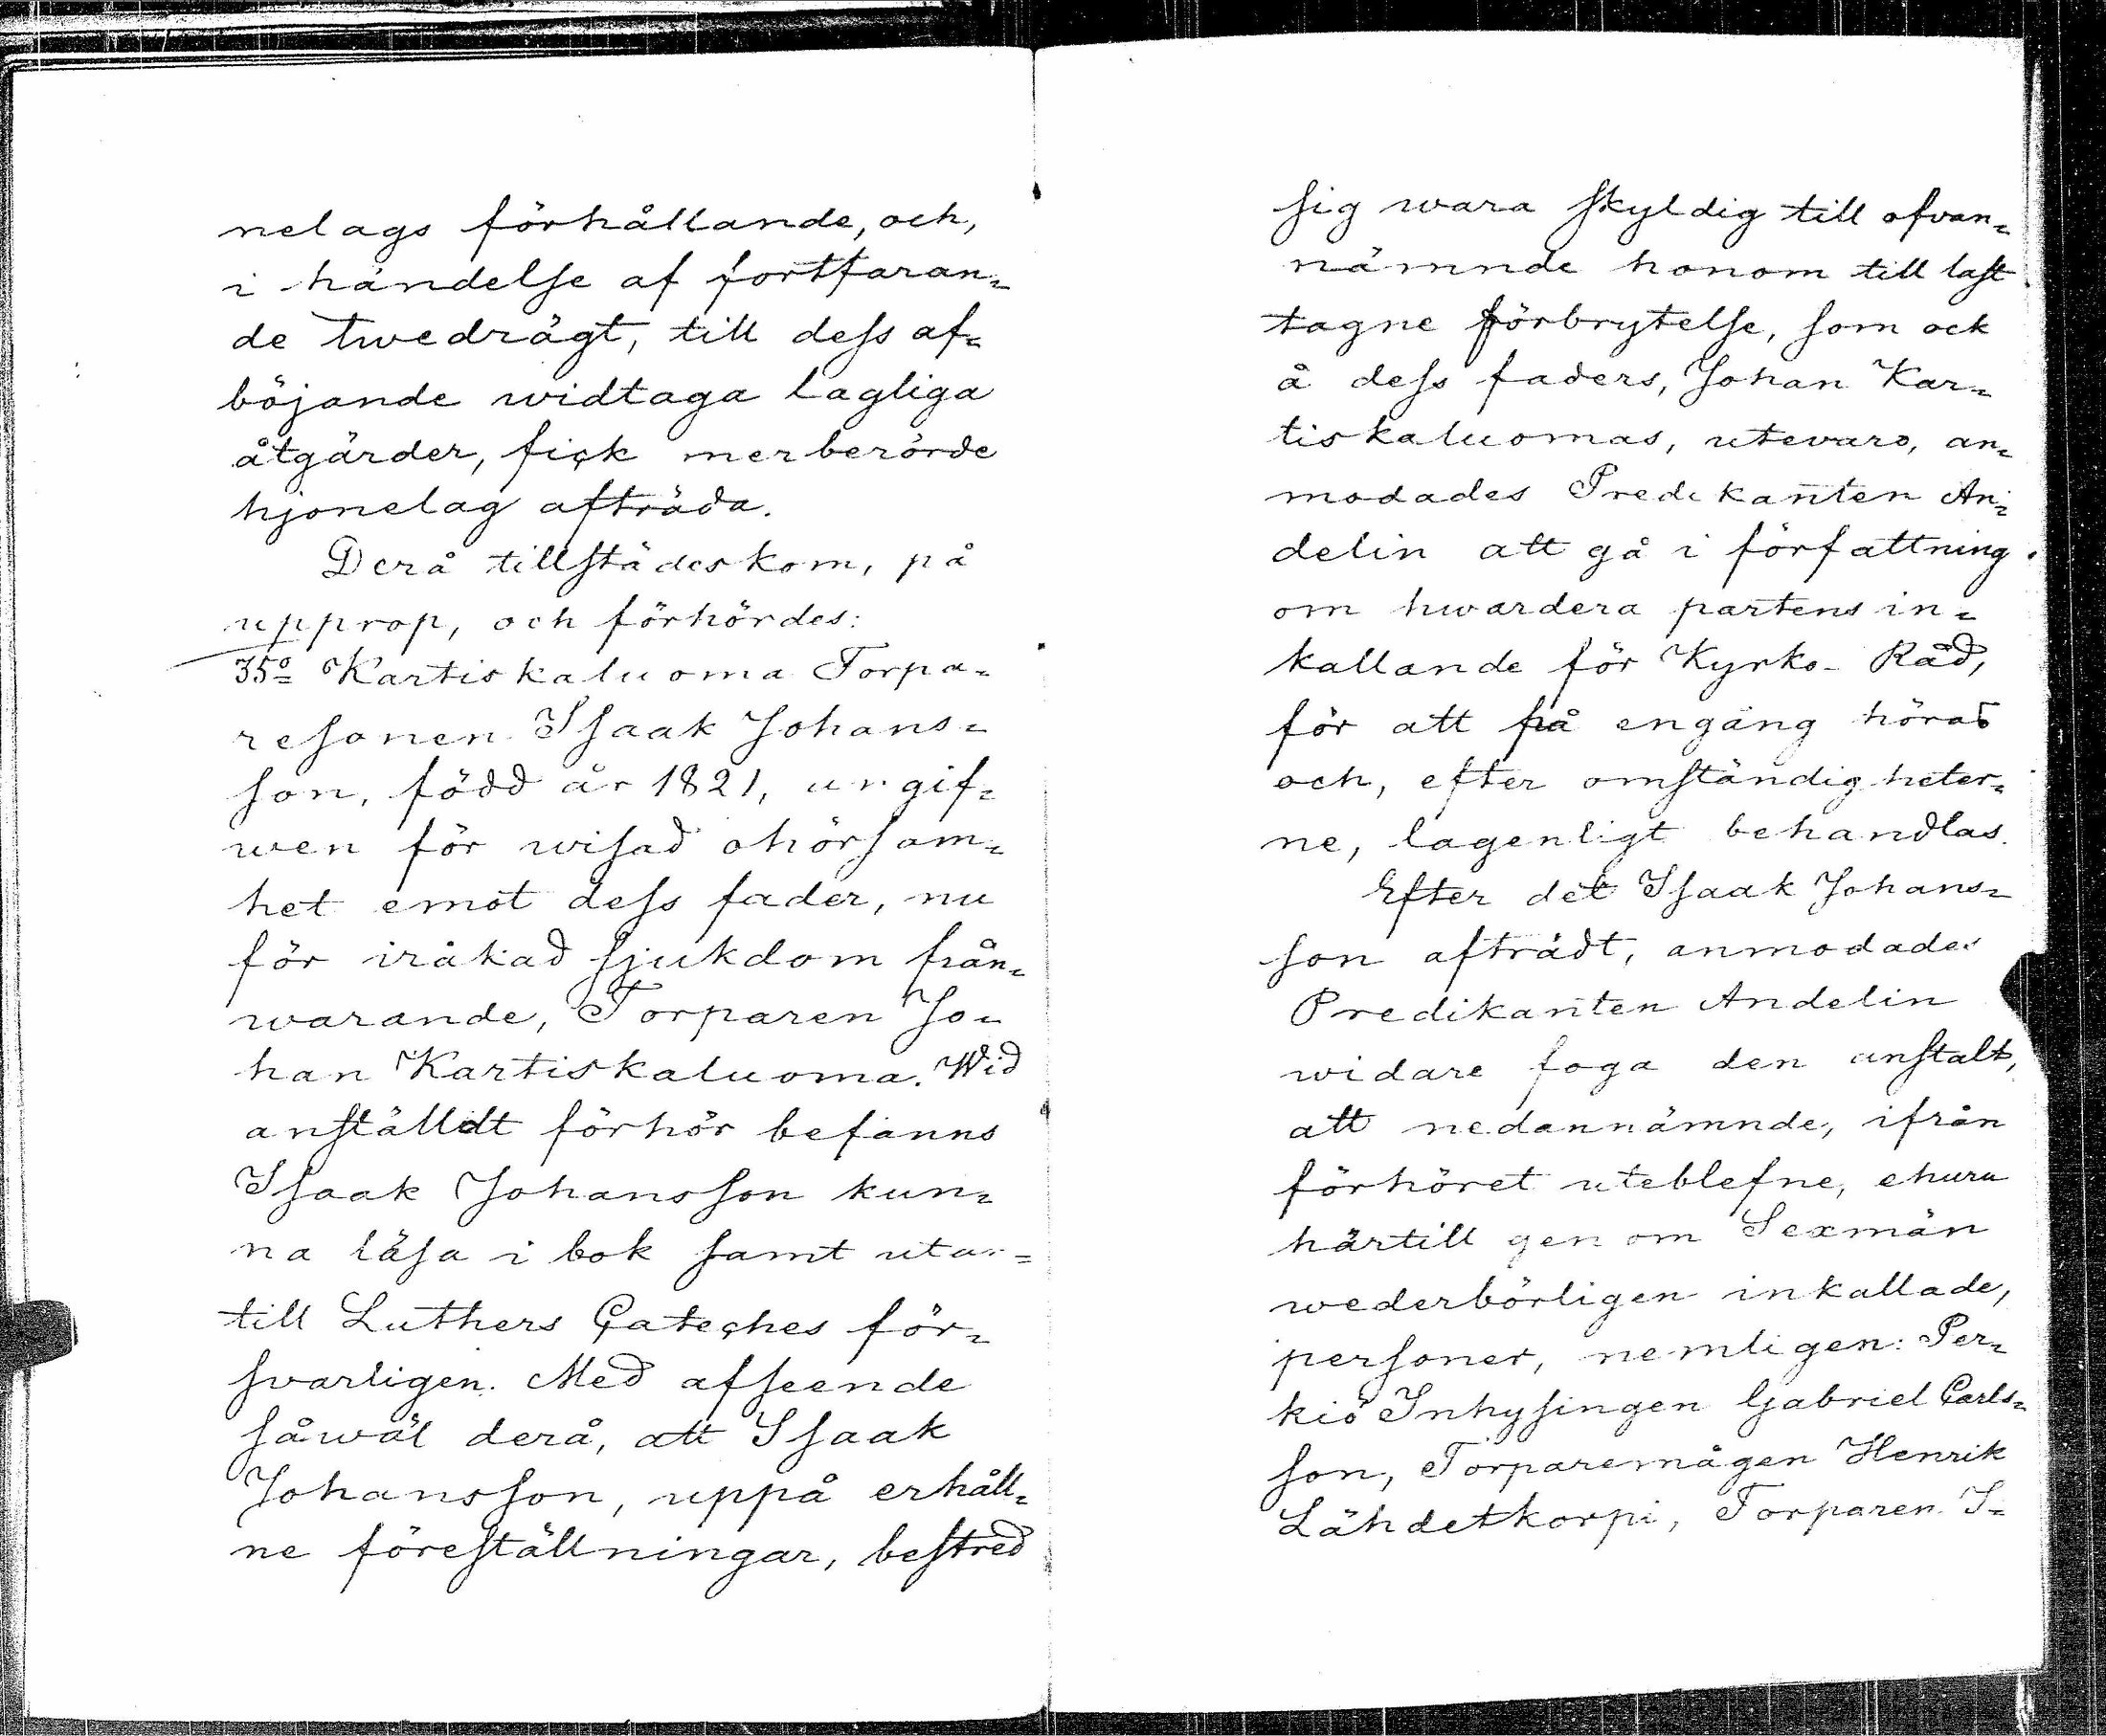 nelags förhållande, och,
i händelse af fortfaran=
de twedrägt, till dess af=
böjande widtaga lagliga
åtgärder, fick merberörde
hjonelag afträda.
Derå tillstädeskom, på
upprop, och förhördes:
35o Kartiskaluoma Torpa=
resonen Isaak Johans=
son, född år 1821, angif=
wen för wisad ohörsam=
het emot dess fader, nu
för iråkad sjukdom från=
warande, Torparen Jo=
han Kartiskaluoma. Wid
anställdt förhör befanns
Isaak Johansson kun=
na läsa i bok samt utan=
till Luthers Cateches för=
svarligen. Med afseende
såwäl derå, att Isaak
Johansson, uppå erhåll=
ne föreställningar, bestred
sig wara skyldig till ofvan=
nämnde honom till last
tagne förbrytelse, som ock
å dess faders, Johan Kar=
tiskaluomas, utevaro, an=
modades Predikanten An=
delin att gå i författning
om hwardera partens in=
kallande för Kyrko-Råd,
för att på engång höras
och, efter omständigheter=
ne, lagenligt behandlas.
Efter det Isaak Johans=
son afträdt, anmodades
Predikanten Andelin
widare foga den anstalt,
att nedannämnde, ifrån
förhöret uteblefne, ehuru
härtill genom Sexmän
wederbörligen inkallade,
personer, nemligen: Per=
kiö Inhysingen Gabriel Carls=
son, Torparemågen Henrik
Lähdetkorpi, Torparen I=